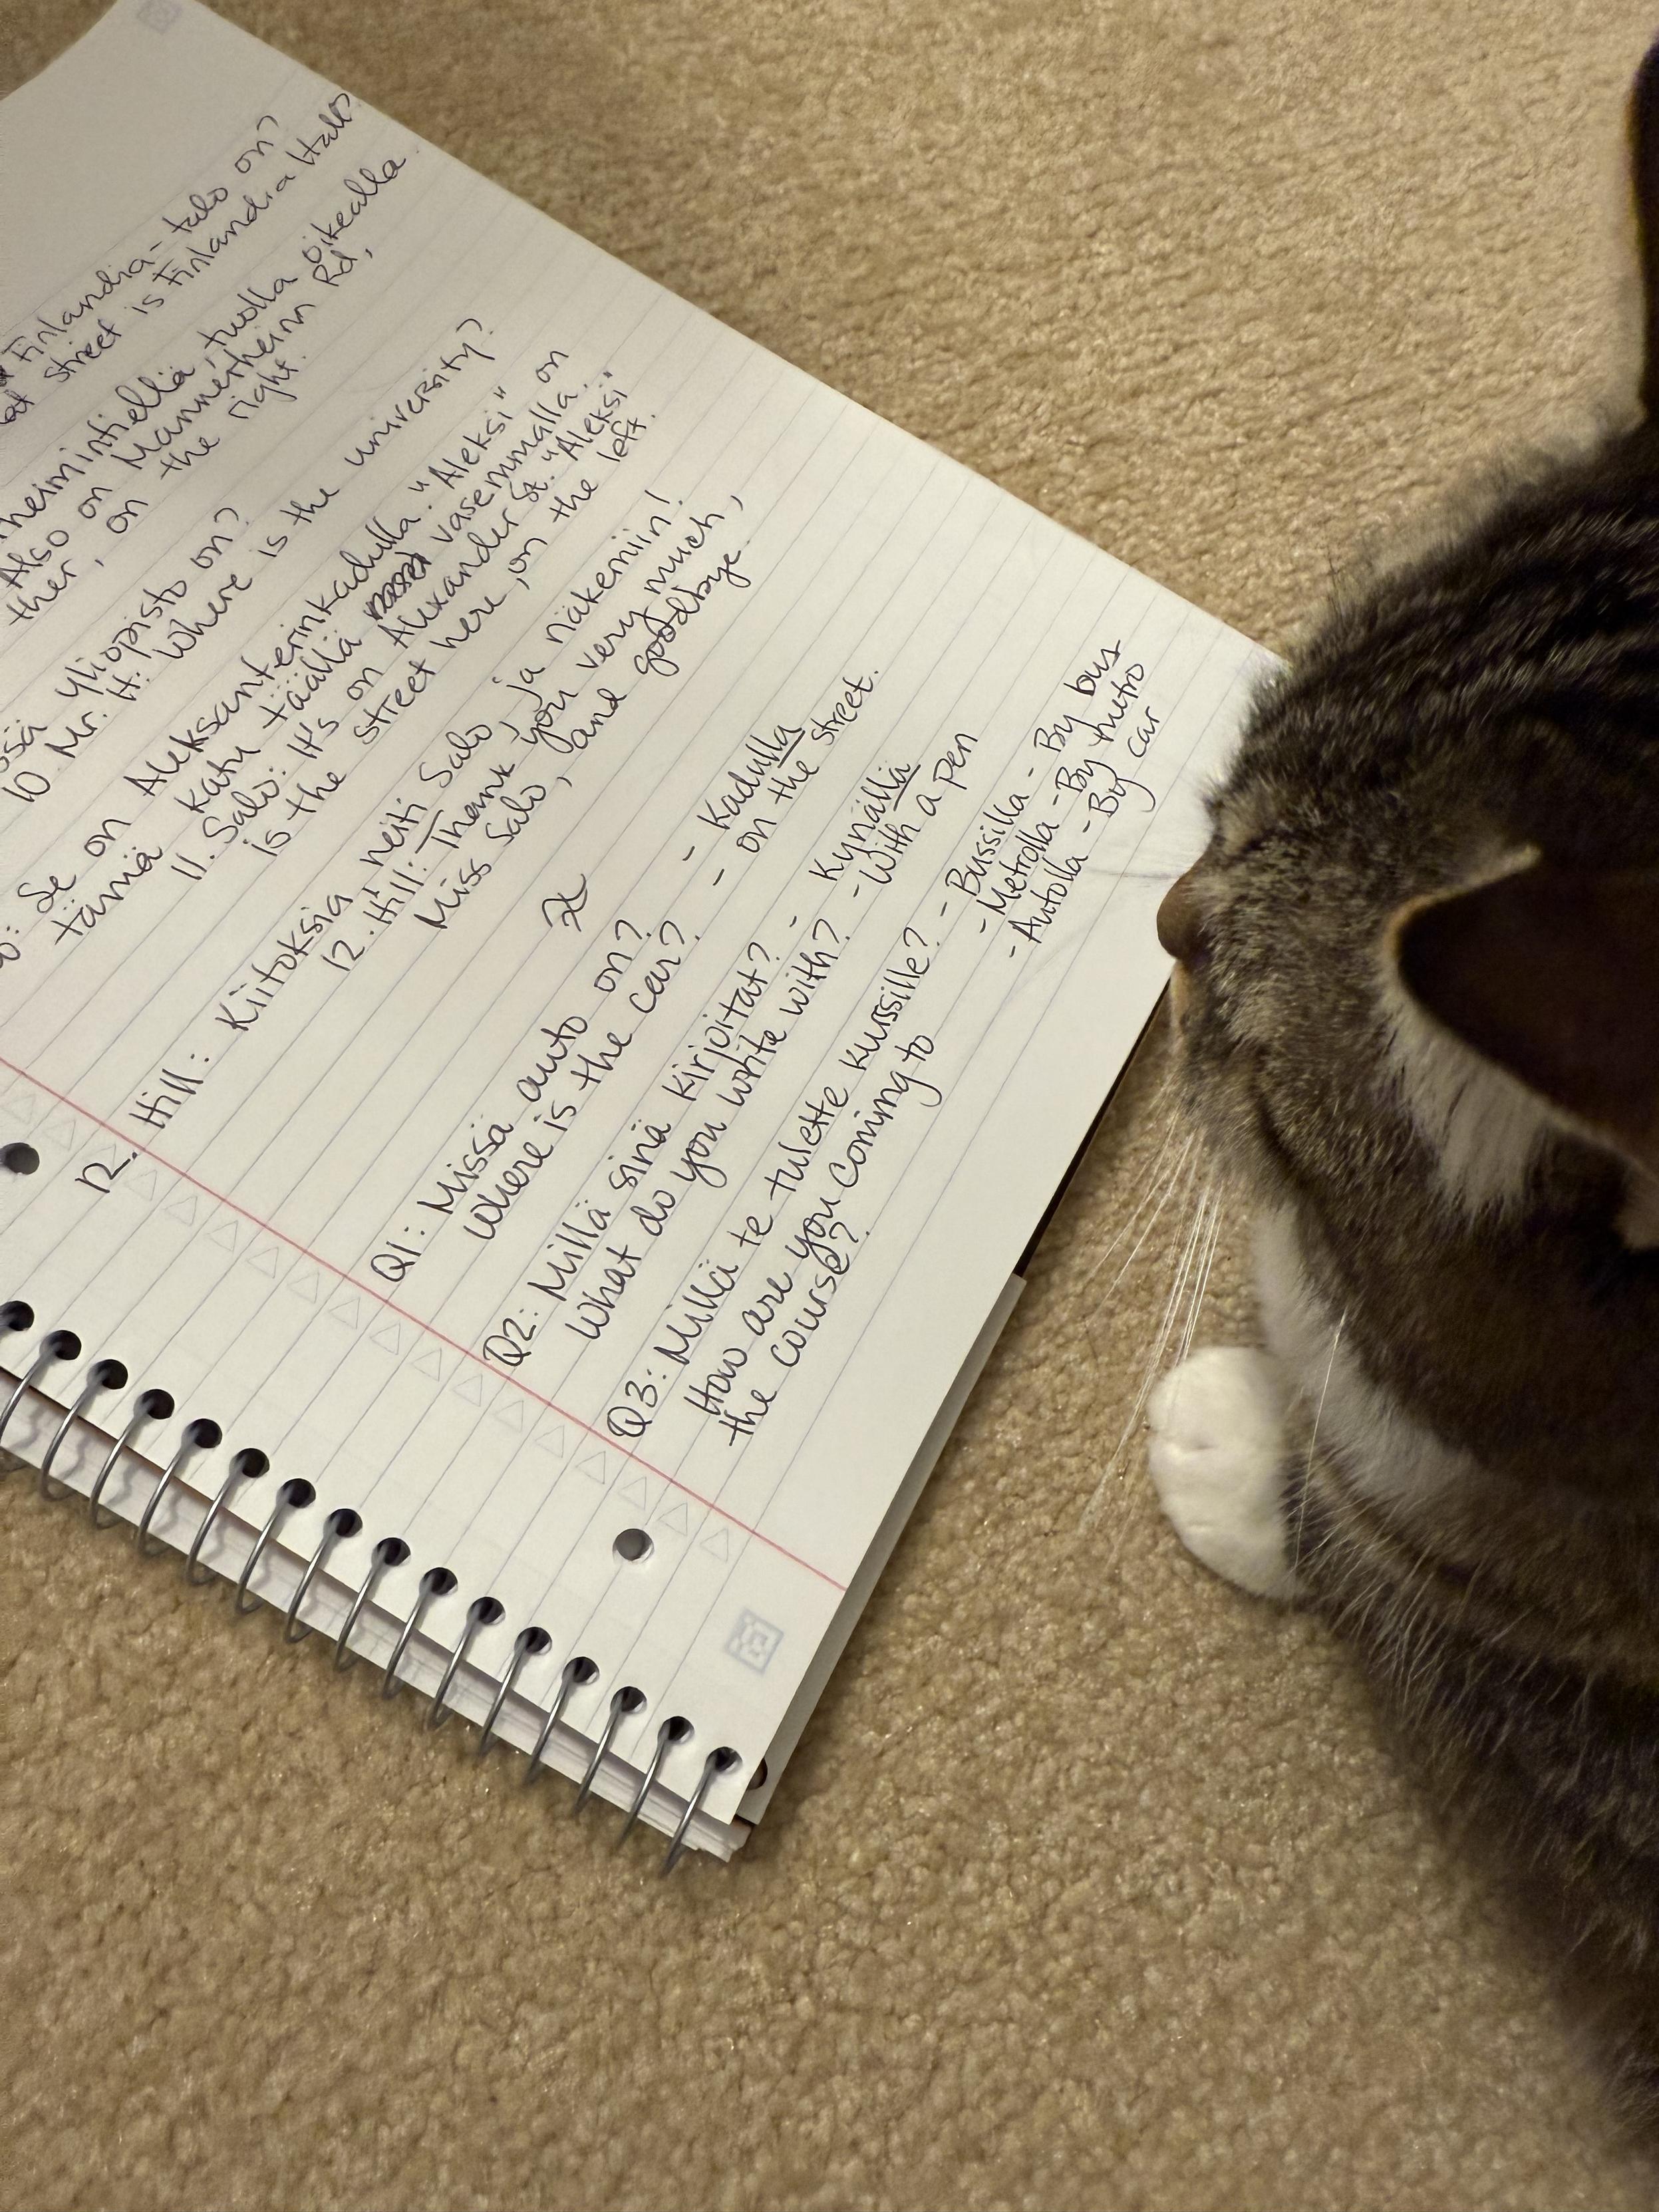 Finlandia-talo on?
street is Finlandia Hall?
heimintiellä, tuolla oikealla
Also on Mannerheim Rd,
ther, on the right.
yliopisto on?
10 Mr. H: Where is the university?
Se on Aleksanterinkadulla. "Aleksi" on
tämä katu täällä vasemmalla.
11. Salo: It's on Alexander St. "Aleksi"
is the street here, on the left.
12. Hill: Kiitoksia neiti Salo ja näkemiin!
12. Hill: Thank you very much,
Miss Salo, and goodbye.
Q1: Missä auto on? - Kadulla
Where is the car? - on the street.
Q2: Millä sinä kirjoitat? - Kynällä
What do you write with? - With a pen
Q3: Millä te tulette kurssille? - Bussilla - By bus
How are you coming to - Metrolla - By metro
the course? - Autolla - By car